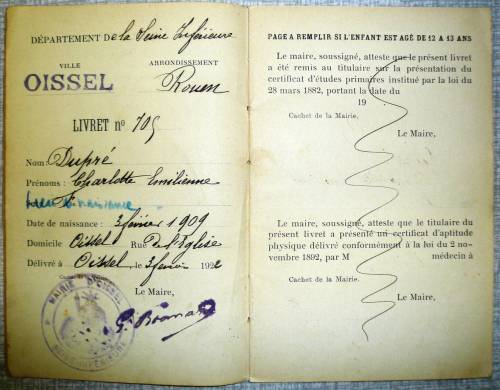 DÉPARTEMENT De la Seine Inférieure
VILLE
ARRONDISSEMENT
OISSEL
Rouen
LIVRET nº 705
Nom: Dupré
Prénoms: Charlotte Emilienne
Lieu de naissance
Date de naissance: 3 février 1909
Domicile Oissel Rue De l'Eglise
Délivré à Oissel, le 3 février 1922
Cachet
Le Maire,
MAIRIE D'OISSEL
SEINE-INFÉRIEURE
PAGE A REMPLIR SI L'ENFANT EST AGÉ DE 12 A 13 ANS
Le maire, soussigné, atteste que le présent livret
a été remis au titulaire sur la présentation du
certificat d'études primaires institué par la loi du
28 mars 1882, portant la date du
19
Cachet de la Mairie.
Le Maire,
Le maire, soussigné, atteste que le titulaire du
présent livret a présenté un certificat d'aptitude
physique délivré conformément à la loi du 2 no-
vembre 1892, par M médecin à
Cachet de la Mairie.
Le Maire,